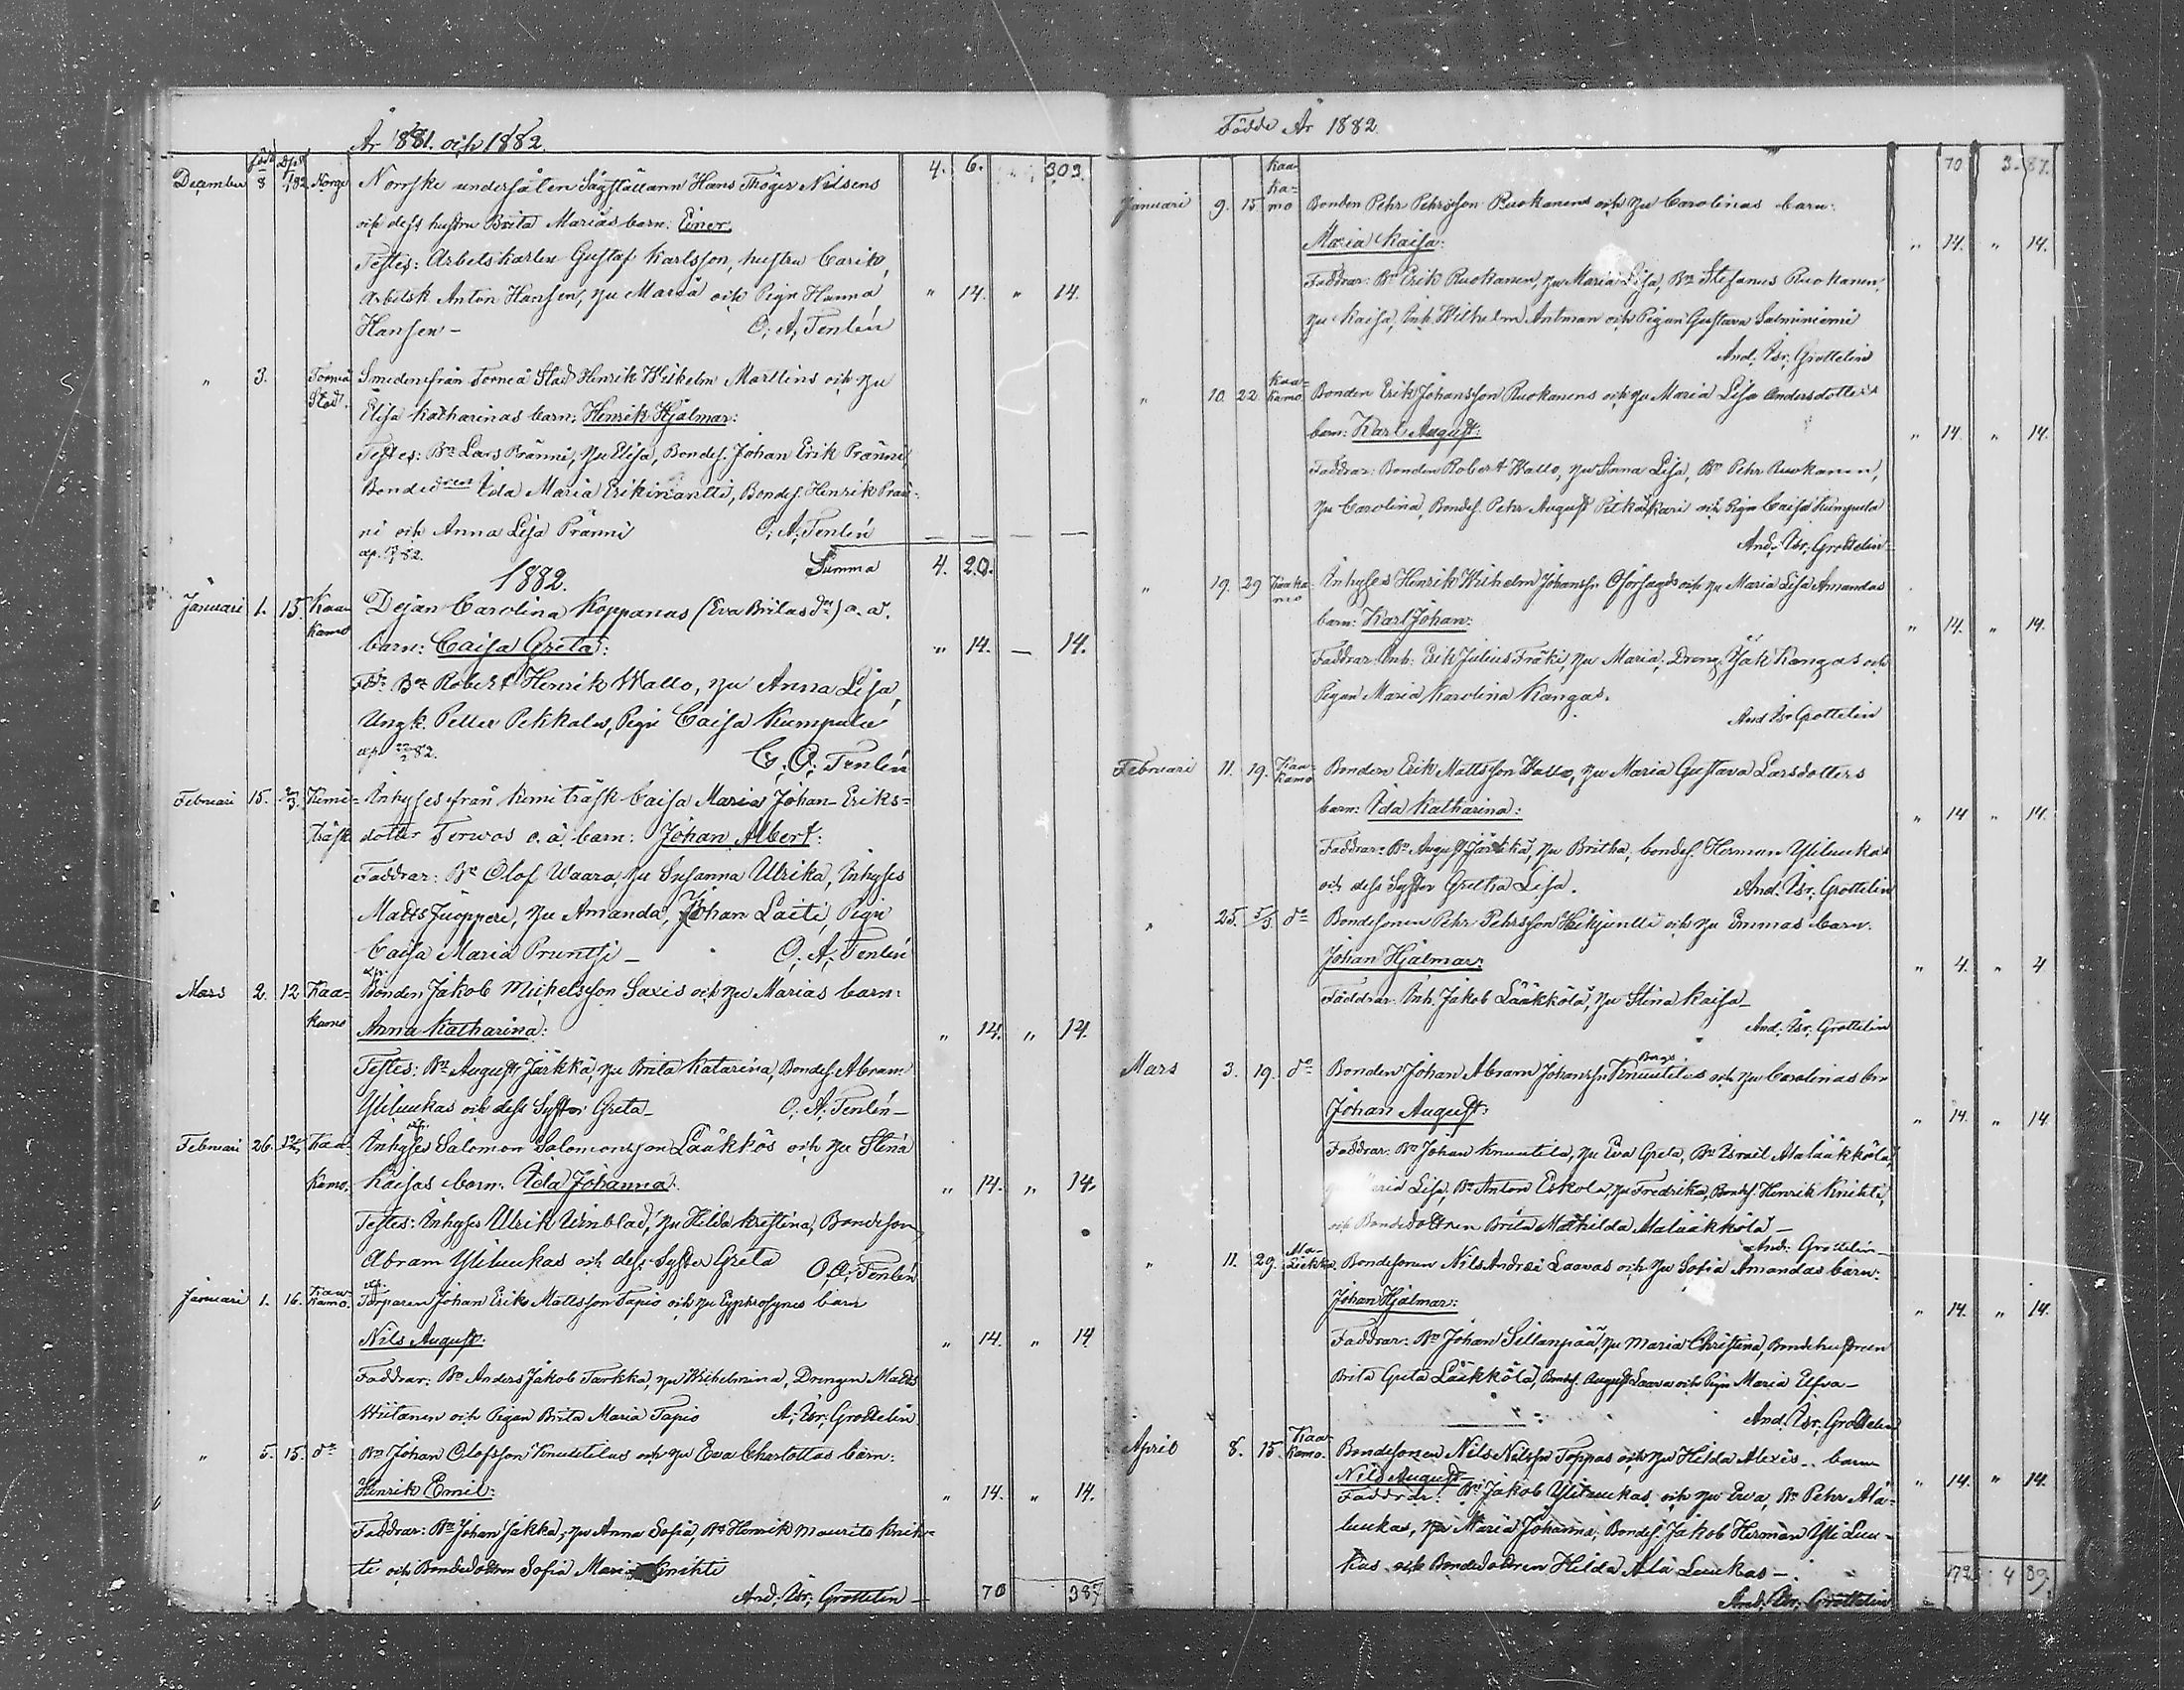 År 1881. och 1882.
född döpt
December 8 1/1 82 Norge Norrske undersåten Sågställarn Hans Thoger Nilsens 4. 6. 303.
och dess hustru Brita Marias barn: Einer.
Testes: Arbetskarlen Gustaf Karlsson, hustru Carin,
Arbetsk Anton Hansen, hu Maria och Pign Hanna " 14. " 14.
Hansen – O. A. Tenlén
" 3. Torneå Smeden från Torneå Stad Henrik Wilhelm Marttins och hu
Stad. Elisa Katharinas barn: Henrik Hjalmar:
Testes: Bn Lars Pränni, hu Elisa, Bondes. Johan Erik Pränni
Bonded Ida Maria Erikinantti, Bondes. Henrik Prän-
ni och Anna Lisa Pränni O. A. Tenlén — — — —
Summa 4. 20.
1882.
Januari 1. 15. Kaa- Dejan Carolina Koppanas (Eva Britas dr) o. ä.
kamo barn: Caisa Greta: " 14. — 14.
Fdr: Bn Robert Henrik Wallo, hu Anna Lisa,
Ungk. Petter Pekkala, Pign Caisa Kumpula
O. Tenlén
Februari 15. Kemi- Inhyses från Kemi träsk Caisa Maria Johan-Eriks-
träsk dotter Terwos o. ä. barn: Johan Albert:
Faddrar: Bn Olof Waara, hu Susanna Ulrika, Inhyses
Matts Juopperi, hu Amanda, Johan Laiti, Pign
Caisa Maria Pruntsi – O. A. Tenlén
Mars 2. 12 Kaa- Bonden Jakob Michelsson Saxis och hu Marias barn:
kamo Anna Katharina: " 14. " 14.
Testes: Bn August Järkkä, hu Brita Katarina, Bondes. Abram
Yliluukas och dess Syster Greta – O. A. Tenlén –
Februari 26. 12/3 Kaa- Inhyses Salomon Salomonsson Lääkkös och hu Stina
kamo. Kaisas barn: Ida Johanna: " 14. " 14.
Testes: Inhyses Ulrik Winblad, hu Hilda Kristina, Bondeson
Abram Yliluukas och dess Syster Greta O. A. Tenlén
Januari 1. 16. Kaa- Torparen Johan Erik Mattsson Tapio och hu Eyphrosynes barn
kamo.
Nils August: " 14. " 14
Faddrar: Bn Anders Jakob Tarkka, hu Wilhelmina, Drengen Matts
Wiitanen och Pigan Brita Maria Tapio A. Isr. Grottelin
" 5. 15. do Bn Johan Olofsson Knuutilas och hu Eva Charlottas barn:
Henrik Emil: " 14. " 14.
Faddrar: Bn Johan Jakka, hu Anna Sofia, Bn Henrik Maurits Knih-
ti och Bondedottren Sofia Maria Knihti
And. Isr. Grottelin – 70 387
Födde År 1882.
70 3. 87.
Januari 9. 15 Kaa-
ka-
mo Bonden Pehr Pehrsson Ruokanens och hu Carolinas barn:
Maria Kaisa: " 14. " 14.
Faddrar: Bn Erik Ruokanen, hu Maria Lisa, Bn Stefanus Ruokanen,
hu Kaisa, Inh. Wilhelm Antman och Pigan Gustava Salminiemi
And. Isr. Grottelin
" 10. 22 Kaa-
kamo Bonden Erik Johansson Ruokanens och hu Maria Lisa Andersdotters
barn: Karl August: " 14. " 14.
Faddrar: Bonden Robert Wallo, hu Anna Lisa, Bn Pehr Ruokanen,
hu Carolina, Bondes. Pehr August Pitkäkari och Pign Caisa Kumpula
And. Isr. Grottelin
" 19. 29 Kaaka-
mo Inhyses Henrik Wilhelm Johanssn och hu Maria Lisa Amandas
barn: Karl Johan: " 14. " 14.
Faddrar: Inh: Erik Julius Träki, hu Maria, Dreng: Isak Kangas och
Pigan Maria Karolina Kangas.
And Isr Grottelin
Februari 11. 19. Kaa-
kamo Bonden Erik Mattsson Wallo, hu Maria Gustava Larsdotters
barn: Ida Katharina: " 14 " 14.
Faddrar: Bn August Järkkä, hu Britha, bondes. Herman Yliluukas
och dess Syster Gretha Lisa. And. Isr. Grottelin
" 25. 5/3 do Bondesonen Pehr Pehrsson och hu Emmas barn.
Johan Hjalmar: " 4. " 4
Faddrar: Inh. Jakob Lääkkölä, hu Stina Kaisa –
And. Isr. Grottelin
Mars 3. 19. do Bonden Johan Abram Johanssn Knuutilas och hu Carolinas bn
Johan August: " 14. " 14
Faddrar: Bn Johan Knuutila, hu Eva Greta, Bn Israel Alalääkkölä,
Maria Lisa, Bn Anton Eskola, hu Fredrika, Bondes. Henrik Knihti,
och Bondedottren Brita Mathilda Alalääkkölä –
And: Grottelin –
" 11. 29. Bondesonen Nils Andrei Laavas och hu Sofia Amandas barn:
Johan Hjalmar: " 14. " 14.
Faddrar: Bn Johan Sillanpää, hu Maria Christina, Bondehustrun
Brita Greta Lääkkölä, Bondes. August Laava och Pign Maria Elsva –
And. Isr. Grottelin
April 8. 15. Kaa-
kamo. Bondesonen Nils Nilssn Toppas och hu Hilda Alexis.. barn
Nils August: " 14. " 14.
Faddrar: Bn Jakob Yliluukas och hu Eva, Bn Pehr Ala-
luukas, hu Maria Johanna, Bondes. Jakob Herman Yliluu-
kas och Bondedottren Hilda Ala Luukas – 172 4 39.
And. Isr. Grottelin